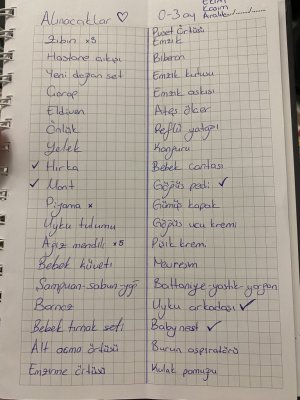 Alınacaklar ♡
Zıbın x5
Hastane çıkışı
Yeni doğan set
Çorap
Eldiven
Önlük
Yelek
✓ Hırka
✓ Mont
Pijama x
Uyku tulumu
Ağız mendili x5
Bebek küveti
Şampuan-sabun-yağ
Bornoz
Bebek tırnak seti
Alt açma örtüsü
Emzirme örtüsü
0-3 ay
Ekim
Kasım
Aralık
Puset Örtüsü
Emzik
Biberon
Emzik kutusu
Emzik askısı
Ateş ölçer
Reflü yatağı
Kanguru
Bebek çantası
Göğüs pedi ✓
Gümüş kapak
Göğüs ucu kremi
Pişik krem
Mevresim
Battaniye-yastık-yorgan
Uyku arkadaşı ✓
Babynest ✓
Burun aspiratörü
Kulak pamuğu